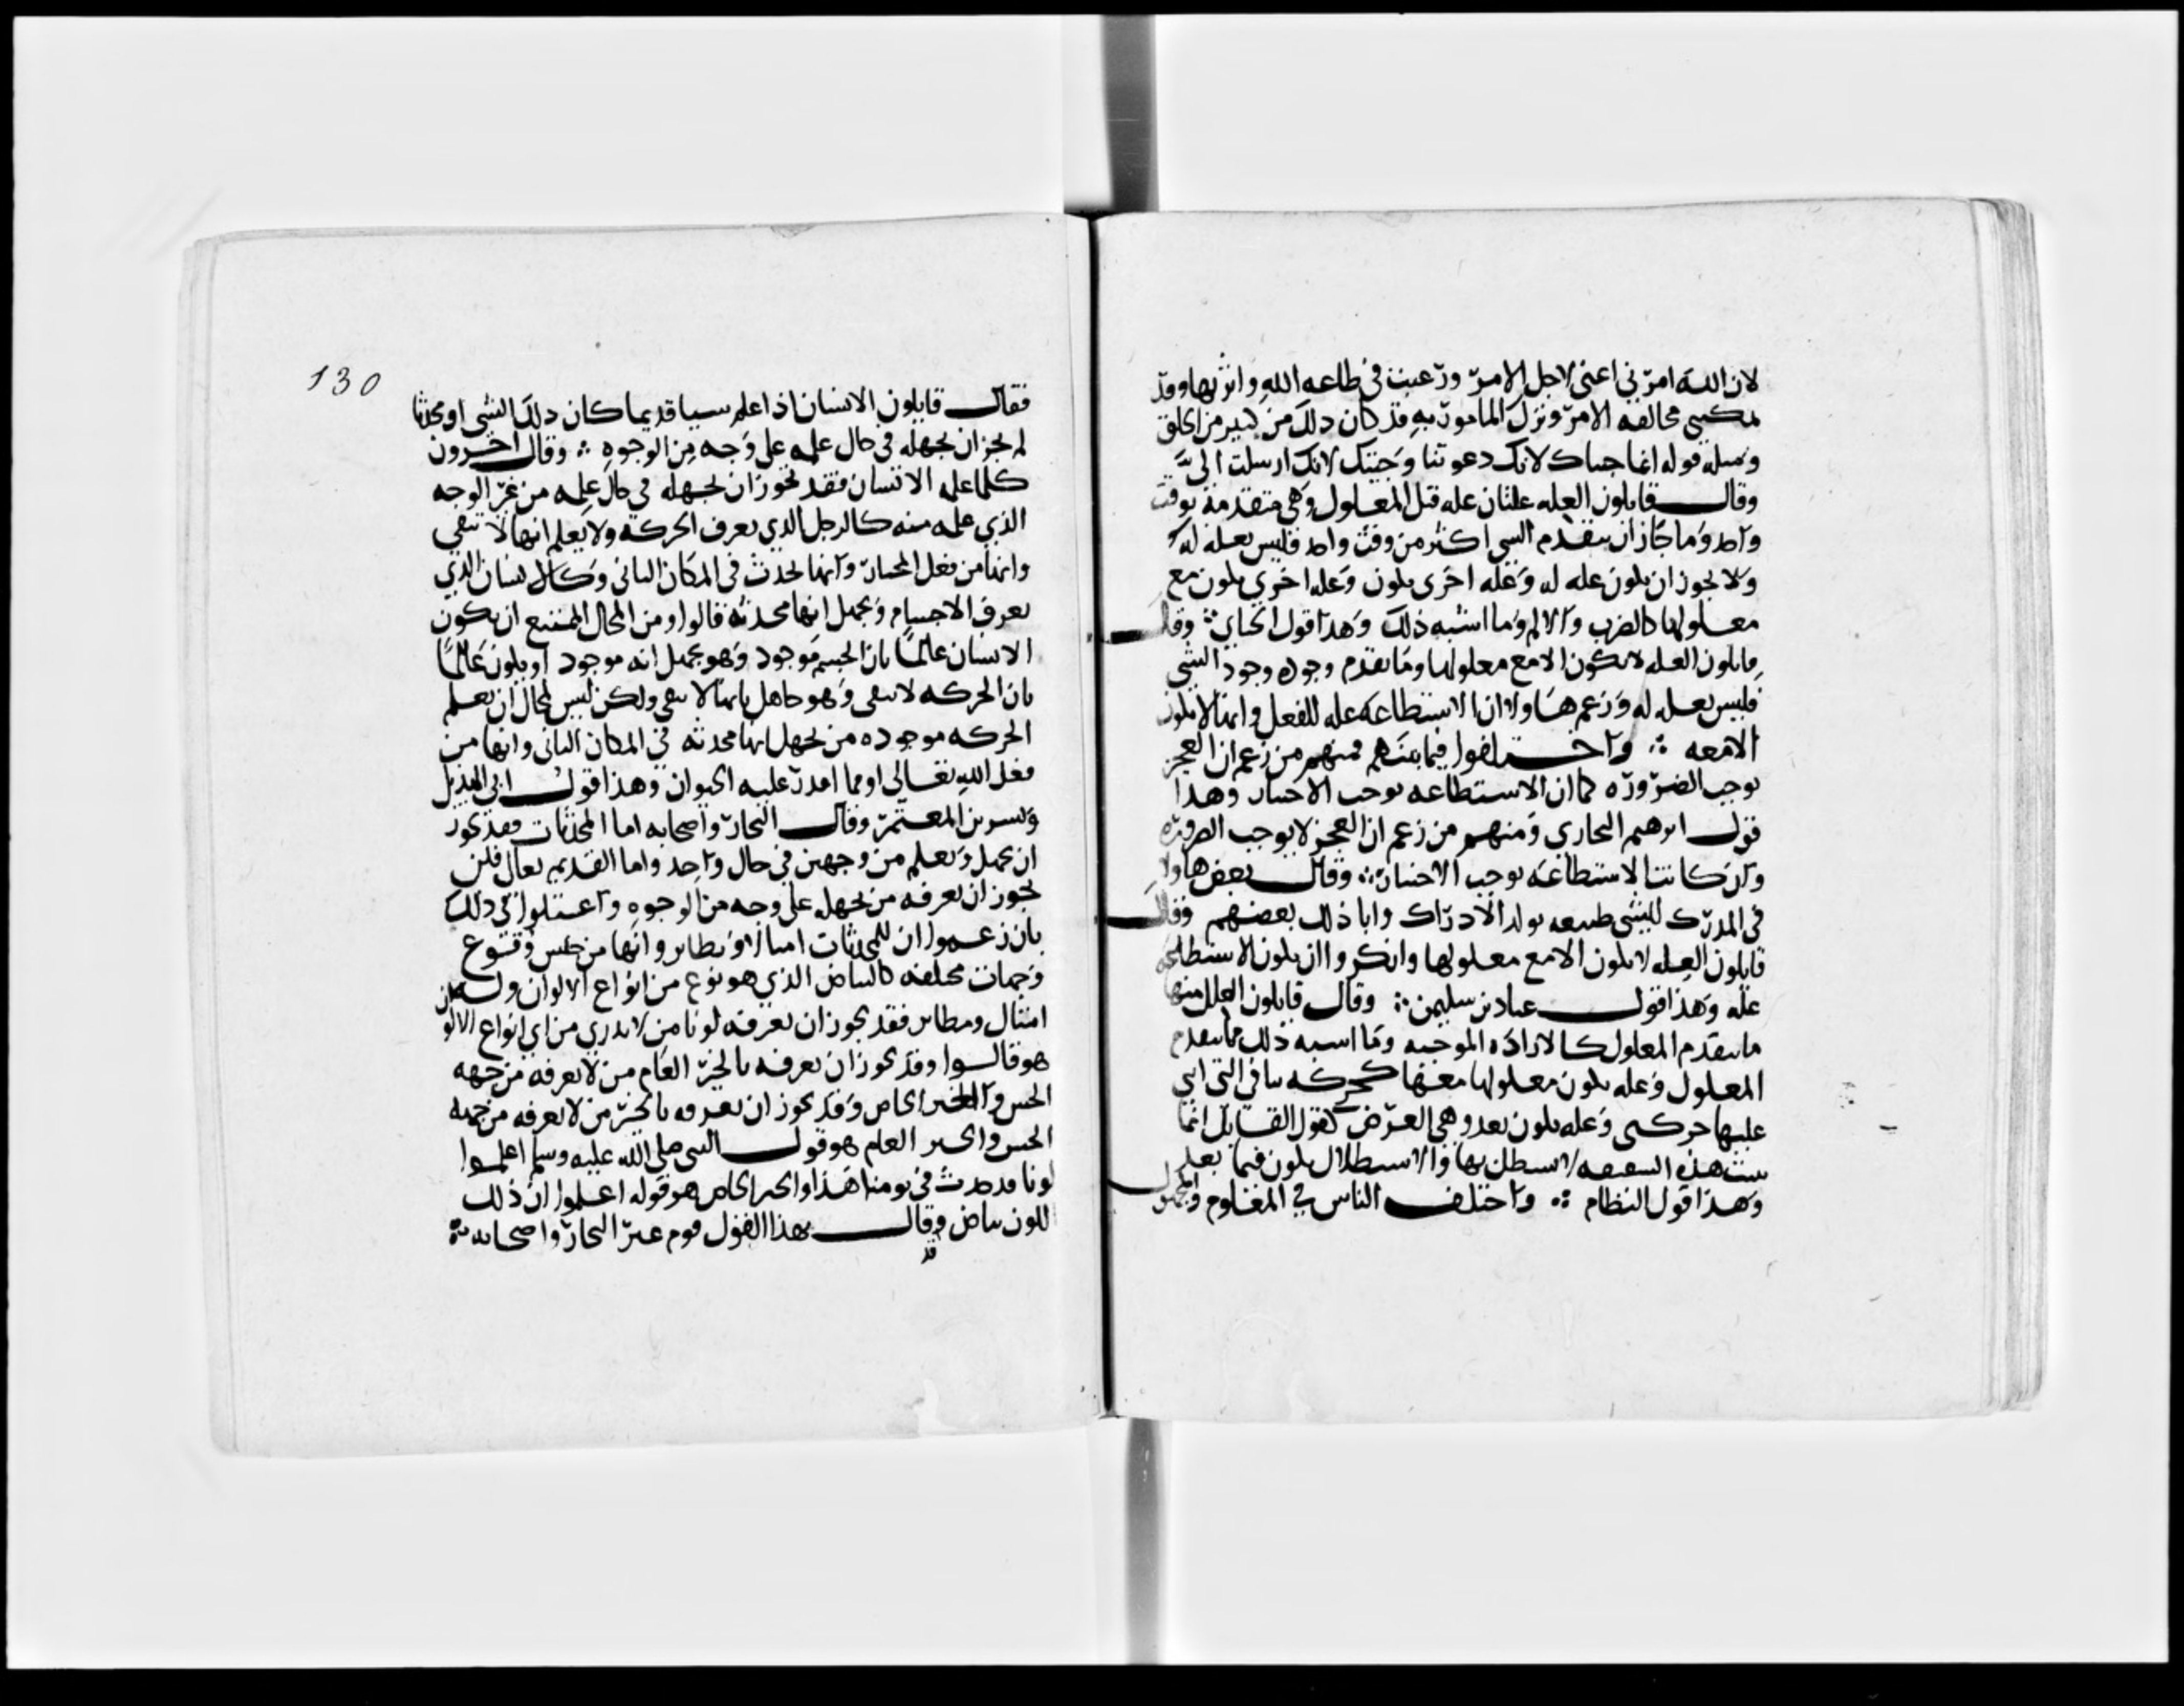 لان الله امرني اعني لاجل الامر ورغبت في طاعه الله واثرتها وقد
يمكنني مخالفه الامر وترك المامور به وقد كان ذلك من كثير من الخلق
ومثله قوله انما جيتك لانك دعوتنا وجيتك لانك ارسلت الي
وقال قايلون العله علتان عله قبل المعلول وهي متقدمه بوقت
واحد وما جاز ان يتقدم الشي اكثر من وقت واحد فليس بعله له
ولا يجوز ان يكون عله له وعله اخرى يكون وعله اخرى يكون مع
معلولها كالضرب والالم وما اشبه ذلك وهذا قول الجباي ؞ وقال
قايلون العله لا يكون الا مع معلولها وما تقدم وجوده وجود الشي
فليس بعله له وزعم هاولا ان الاستطاعه عله للفعل وانها لا يكون
الا معه ؞ واختلفوا فيما بينهم فمنهم من زعم ان العجز
يوجب الضروره كما ان الاستطاعه يوجب الاختيار وهذا
قول ابرهيم البخاري ومنهم من زعم ان العجز لا يوجب الضروره
وان كانت الاستطاعه يوجب الاختيار ؞ وقال بعض هاولا
في المدرك للشي طبيعه يولد الادراك وابا ذلك بعضهم وقال
قايلون العله لا يكون الا مع معلولها وانكروا ان يكون الاستطاعه
عله وهذا قول عباد بن سليمن ؞ وقال قايلون العلل منها
ما يتقدم المعلول كالاراده الموجبه وما اشبه ذلك مما يتقدم
المعلول وعله يكون معلولها معها كحركه ساقي التي ابني
عليها حركتي وعله يكون بعد وهي الغرض كقول القايل انما
بنيت هذه السقيفه لاستظل بها والاستظلال يكون فيما بعد
وهذا قول النظام ؞ واختلف الناس في المعلوم والمجهول
130
فقال قايلون الانسان اذا علم شيا قديما كان ذلك الشي او محدثا
لم يجز ان يجهله في حال علمه على وجه من الوجوه ؞ وقال اخرون
كلما علمه الانسان فقد يجوز ان يجهله في حال علمه من غير الوجه
الذي علمه منه كالرجل الذي يعرف الحركه ولا يعلم انها لا تبقى
وانها من فعل المختار وانها تحدث في المكان الثاني وكالانسان الذي
يعرف الاجسام ويجهل انها محدثه قالوا ومن المحال الممتنع ان يكون
الانسان عالما بان الجسم موجود وهو يجهل انه موجود او يكون عالما
بان الحركه لا تبقى وهو جاهل بانها لا تبقى ولكن ليس بمحال ان يعلم
الحركه موجوده من يجهل انها محدثه في المكان الثاني وانها من
فعل الله تعالى او مما اقدر عليه الحيوان وهذا قول ابي الهذيل
وبشر بن المعتمر وقال النجار واصحابه اما المحدثات فقد يجوز
ان يجهل ويعلم من وجهين في حال واحد واما القديم تعالى فلن
يجوز ان يعرفه من يجهله على وجه من الوجوه واعتلوا في ذلك
بان زعموا ان للمحدثات امثالا ونظاير وانها من جنس وقنوع
وجهات مختلفه كالبياض الذي هو نوع من انواع الالوان وله
امثال ونظاير فقد يجوز ان يعرفه لونا من لا يدري من اي انواع الالوان
هو قالوا وقد يجوز ان يعرفه بالخبر العام من لا يعرفه من جهه
الحس والخبر الخاص وقد يجوز ان يعرفه بالخبر من لا يعرفه من جهه
الحس والخبر العام هو قول النبي صلى الله عليه وسلم اعلموا
لونا قد حدث في يومنا هذا والخبر الخاص هو قوله اعلموا ان ذلك
اللون بياض وقال بهذا القول قوم غير النجار واصحابه ؞
قد